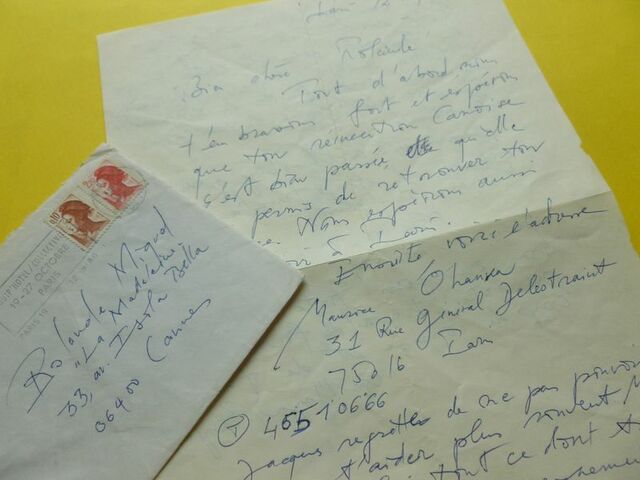 Bien chère Rolande
Tout d'abord nous
t'embrassons fort et espérons
que ton réinsertion Cannoise
s'est bien passée, et qu'elle
permis de retrouver ton
Nous espérons aussi
à Paris.
Ensuite voici l'adresse
Maurice Ohanna
31 Rue Général Delestraint
75016 Paris
T 45510666
Jacques regrette de ne pas pouvoir
t'aider plus souvent
tout ce dont
19-27 OCTOBRE
PARIS
Rolande Miguel
"La Madeleine"
33, av. Isola Bella
06400 Cannes